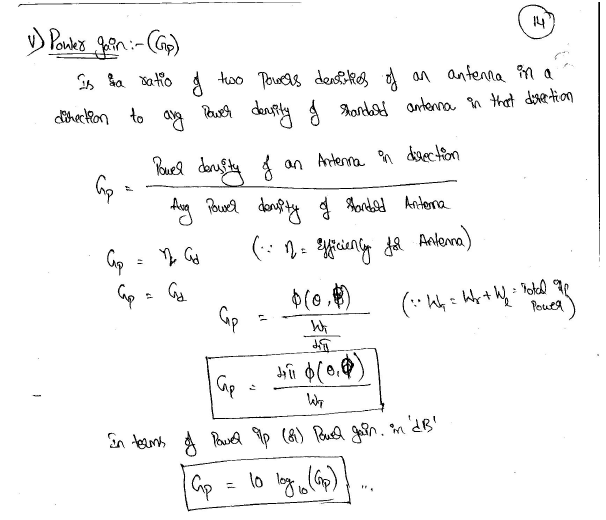 14
V) Power gain:- (Gp)
Is the ratio of two Powers densities of an antenna in a
direction to avg Power density of standard antenna in that direction
Gp = Power density of an Antenna in direction / Avg Power density of standard Antenna
Gp = η Gd (∵ η = Efficiency for Antenna)
Gp = Gd
Gp = ϕ(θ,ϕ) / (WT / 4π) (∵ WT = Wr + Wl = Total i/p Power)
Gp = 4π ϕ(θ,ϕ) / WT
In terms of Power i/p (or) Power gain. in 'dB'
Gp = 10 log10 (Gp) ...